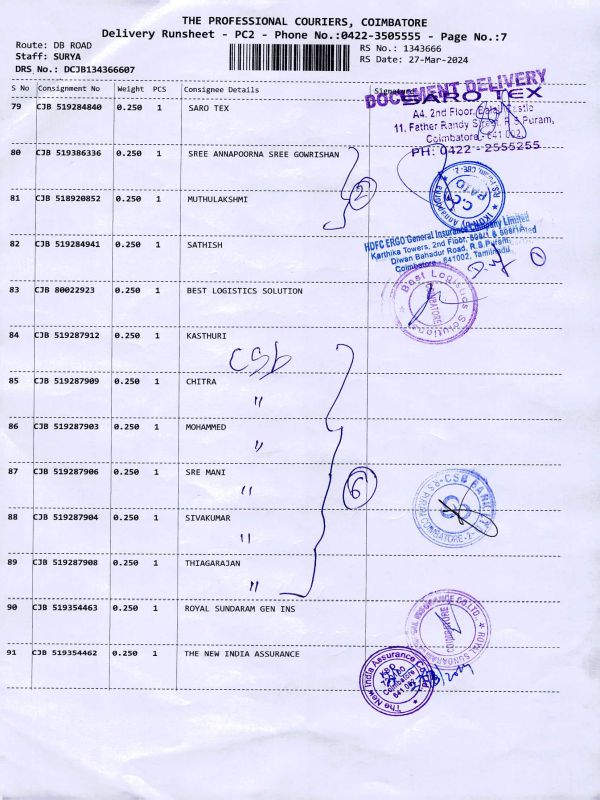 THE PROFESSIONAL COURIERS, COIMBATORE
Delivery Runsheet - PC2 - Phone No.:0422-3505555 - Page No.:7
Route: DB ROAD
RS No.: 1343666
Staff: SURYA
RS Date: 27-Mar-2024
DRS No.: DCJB134366607
S No Consignment No Weight PCS Consignee Details Signature
79 CJB 519284840 0.250 1 SARO TEX
DOCUMENT DELIVERY
SARO TEX
A4, 2nd Floor,
11, Father Randy Street, R.S Puram,
Coimbatore - 641 002
PH: 0422 - 2555255
80 CJB 519386336 0.250 1 SREE ANNAPOORNA SREE GOWRISHAN
2
PAID
81 CJB 518920852 0.250 1 MUTHULAKSHMI
82 CJB 519284941 0.250 1 SATHISH
HDFC ERGO General Insurance Company Limited
Karthika Towers, 2nd Floor,
Diwan Bahadur Road, R.S.Puram,
Coimbatore - 641002, Tamilnadu
1
83 CJB 80022923 0.250 1 BEST LOGISTICS SOLUTION
Best Logistics Solutions
COIMBATORE
84 CJB 519287912 0.250 1 KASTHURI
CSB
85 CJB 519287909 0.250 1 CHITRA
"
86 CJB 519287903 0.250 1 MOHAMMED
"
87 CJB 519287906 0.250 1 SRE MANI
"
6
CSB BANK
COIMBATORE-2
88 CJB 519287904 0.250 1 SIVAKUMAR
"
89 CJB 519287908 0.250 1 THIAGARAJAN
"
90 CJB 519354463 0.250 1 ROYAL SUNDARAM GEN INS
ROYAL SUNDARAM
INSURANCE CO.LTD.
COIMBATORE
91 CJB 519354462 0.250 1 THE NEW INDIA ASSURANCE
The New India Assurance Co.
Coimbatore